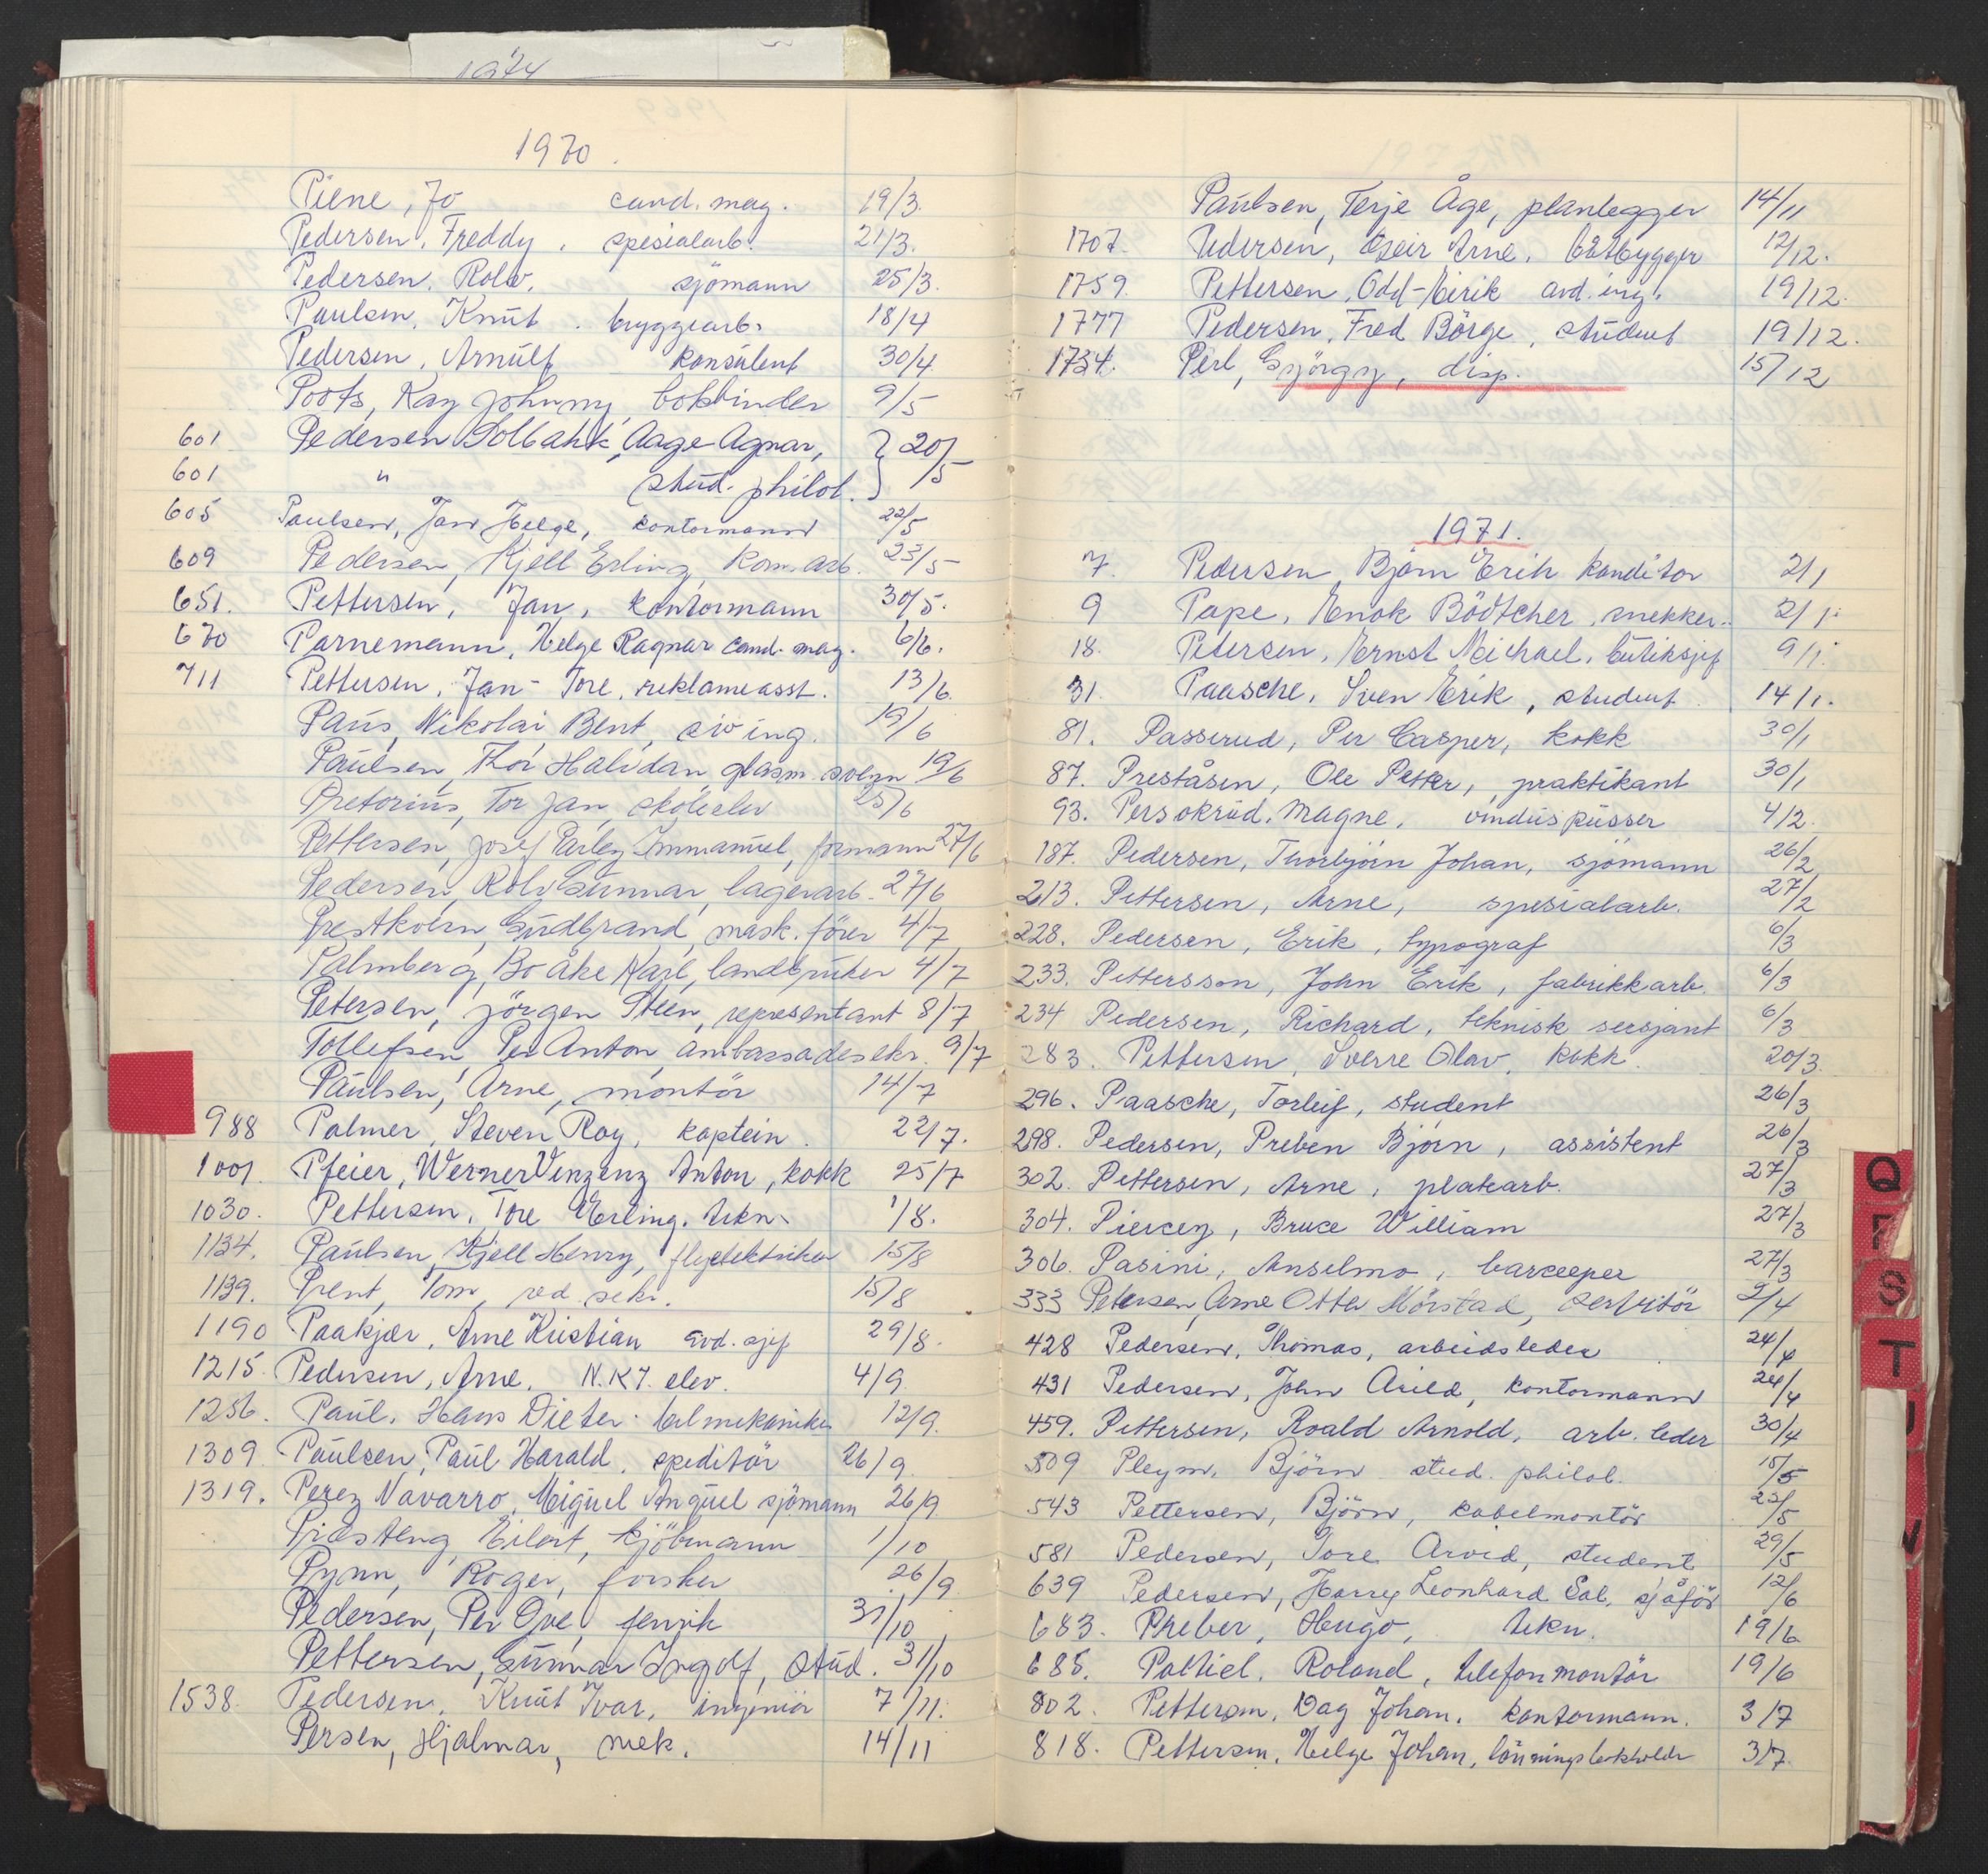 1974
1970.
Piene, Jo cand. mag. 19/3.
Pedersen, Freddy, spesialarb. 21/3.
Pedersen, Rolv, sjömann 25/3.
Paulsen, Knut. byggearb. 18/4
Pedersen, Arnulf konsulent 30/4
Poots, Kay Johnny, bokbinder 9/5
601 Pedersen Solbakk, Aage Agnar, } 20/5
601 " stud. philol.
605 Paulsen, Jan Helge, kontormann 22/5
609 Pedersen, Kjell Erling, kom. arb. 23/5
651. Pettersen, Jan, kontormann 30/5.
670 Parnemann, Helge Ragnar cand. mag. 6/6.
711 Pettersen, Jan-Tore, reklameasst. 13/6.
Paus, Nikolai Bent, siv ing. 19/6
Paulsen, Thor Halvdan glasm. svenn 19/6
Pretorius, Tor Jan, skoleelev 25/6
Pettersen, Josef Parley Immanuel, formann 27/6
Pedersen, Rolv Gunnar, lagerarb. 27/6
Prestkvern, Gudbrand, mask. förer 4/7
Palmberg, Bo Åke Karl, landbruker 4/7
Petersen, Jörgen Steen, representant 8/7
Tollefsen, Per Anton, ambassadesekr. 9/7
Paulsen, Arne, montör 14/7
988 Palmer, Steven Roy, kaptein. 22/7.
1001 Pfeier, Werner Vinzenz Anton, kokk 25/7
1030. Pettersen, Tore Erling, tekn. 1/8.
1134. Paulsen, Kjell Henry, flyelektriker 15/8
1139. Prent, Tom, red. sekr. 15/8
1190 Paakjær, Arne Kristian avd. sjef 29/8.
1215. Pedersen, Arne, N.K.I. elev. 4/9
1256. Paul, Hans Dieter. bilmekaniker 12/9.
1309 Paulsen, Paul Harald, speditör 26/9.
1319. Perez Navarro, Miguel Anguel sjömann 26/9
Præsteng, Eilert, kjöbmann 1/10
Pynn, Roger, forsker 26/9
Pedersen, Per Ove, fenrik 31/10
Pettersen, Gunnar Ingolf, stud. 31/10
1538. Pedersen, Knut Ivar, ingeniör 7/11.
Persen, Hjalmar, mek. 14/11
Paulsen, Terje Åge, planlegger 14/11
1707. Pedersen, Geir Arne, båtbygger 12/12.
1759. Pettersen, Odd-Eirik avd. ing. 19/12.
1777 Pedersen, Fred Börge, student 19/12.
1734. Perl, György, disp. 15/12
1971.
7. Pedersen, Björn Erik konditor 2/1
9 Pape, Enok Bödtcher, snekker. 2/1.
18. Petersen, Ernst Michael, butiksjef 9/1.
31. Paasche, Sven Erik, student 14/1.
81. Passerud, Per Casper, kokk 30/1
87. Preståsen, Ole Petter, praktikant 30/1
93. Persokrud, Magne, vinduspusser 4/2.
187. Pedersen, Thorbjörn Johan, sjömann 26/2
213. Pettersen, Arne, spesialarb. 27/2
228. Pedersen, Erik, typograf 6/3
233. Pettersson, John Erik, fabrikkarb. 6/3
234 Pedersen, Richard, teknisk sersjant 6/3
283. Pettersen, Sverre Olav, kokk. 20/3.
296. Paasche, Torleif, student 26/3
298. Pedersen, Preben Bjørn, assistent 26/3
302. Pettersen, Arne, platearb. 27/3
304. Piercey, Bruce William 27/3
306. Pasini, Anselmo, barkeeper 27/3
333 Petersen, Arne Otter Mörstad, servitör 2/4
428 Pedersen, Thomas, arbeidsleder 24/4
431 Pedersen, John Arild, kontormann 24/4
459. Pettersen, Roald Arnold, arb. leder 30/4
509 Pleym, Björn stud. philol. 15/5
543 Pettersen, Björn, kabelmontör 22/5
581 Pedersen, Tore Arvid, student 29/5
639 Pedersen, Harry Leonhard Sal, sjåför 12/6
683. Preber, Hugo, tekn. 19/6
685. Paltiel, Roland, telefonmontör 19/6
802. Petterson, Dag Johan, kontormann. 3/7
818. Pettersen, Helge Johan, lönningsbokholder 3/7.
Q
S
T